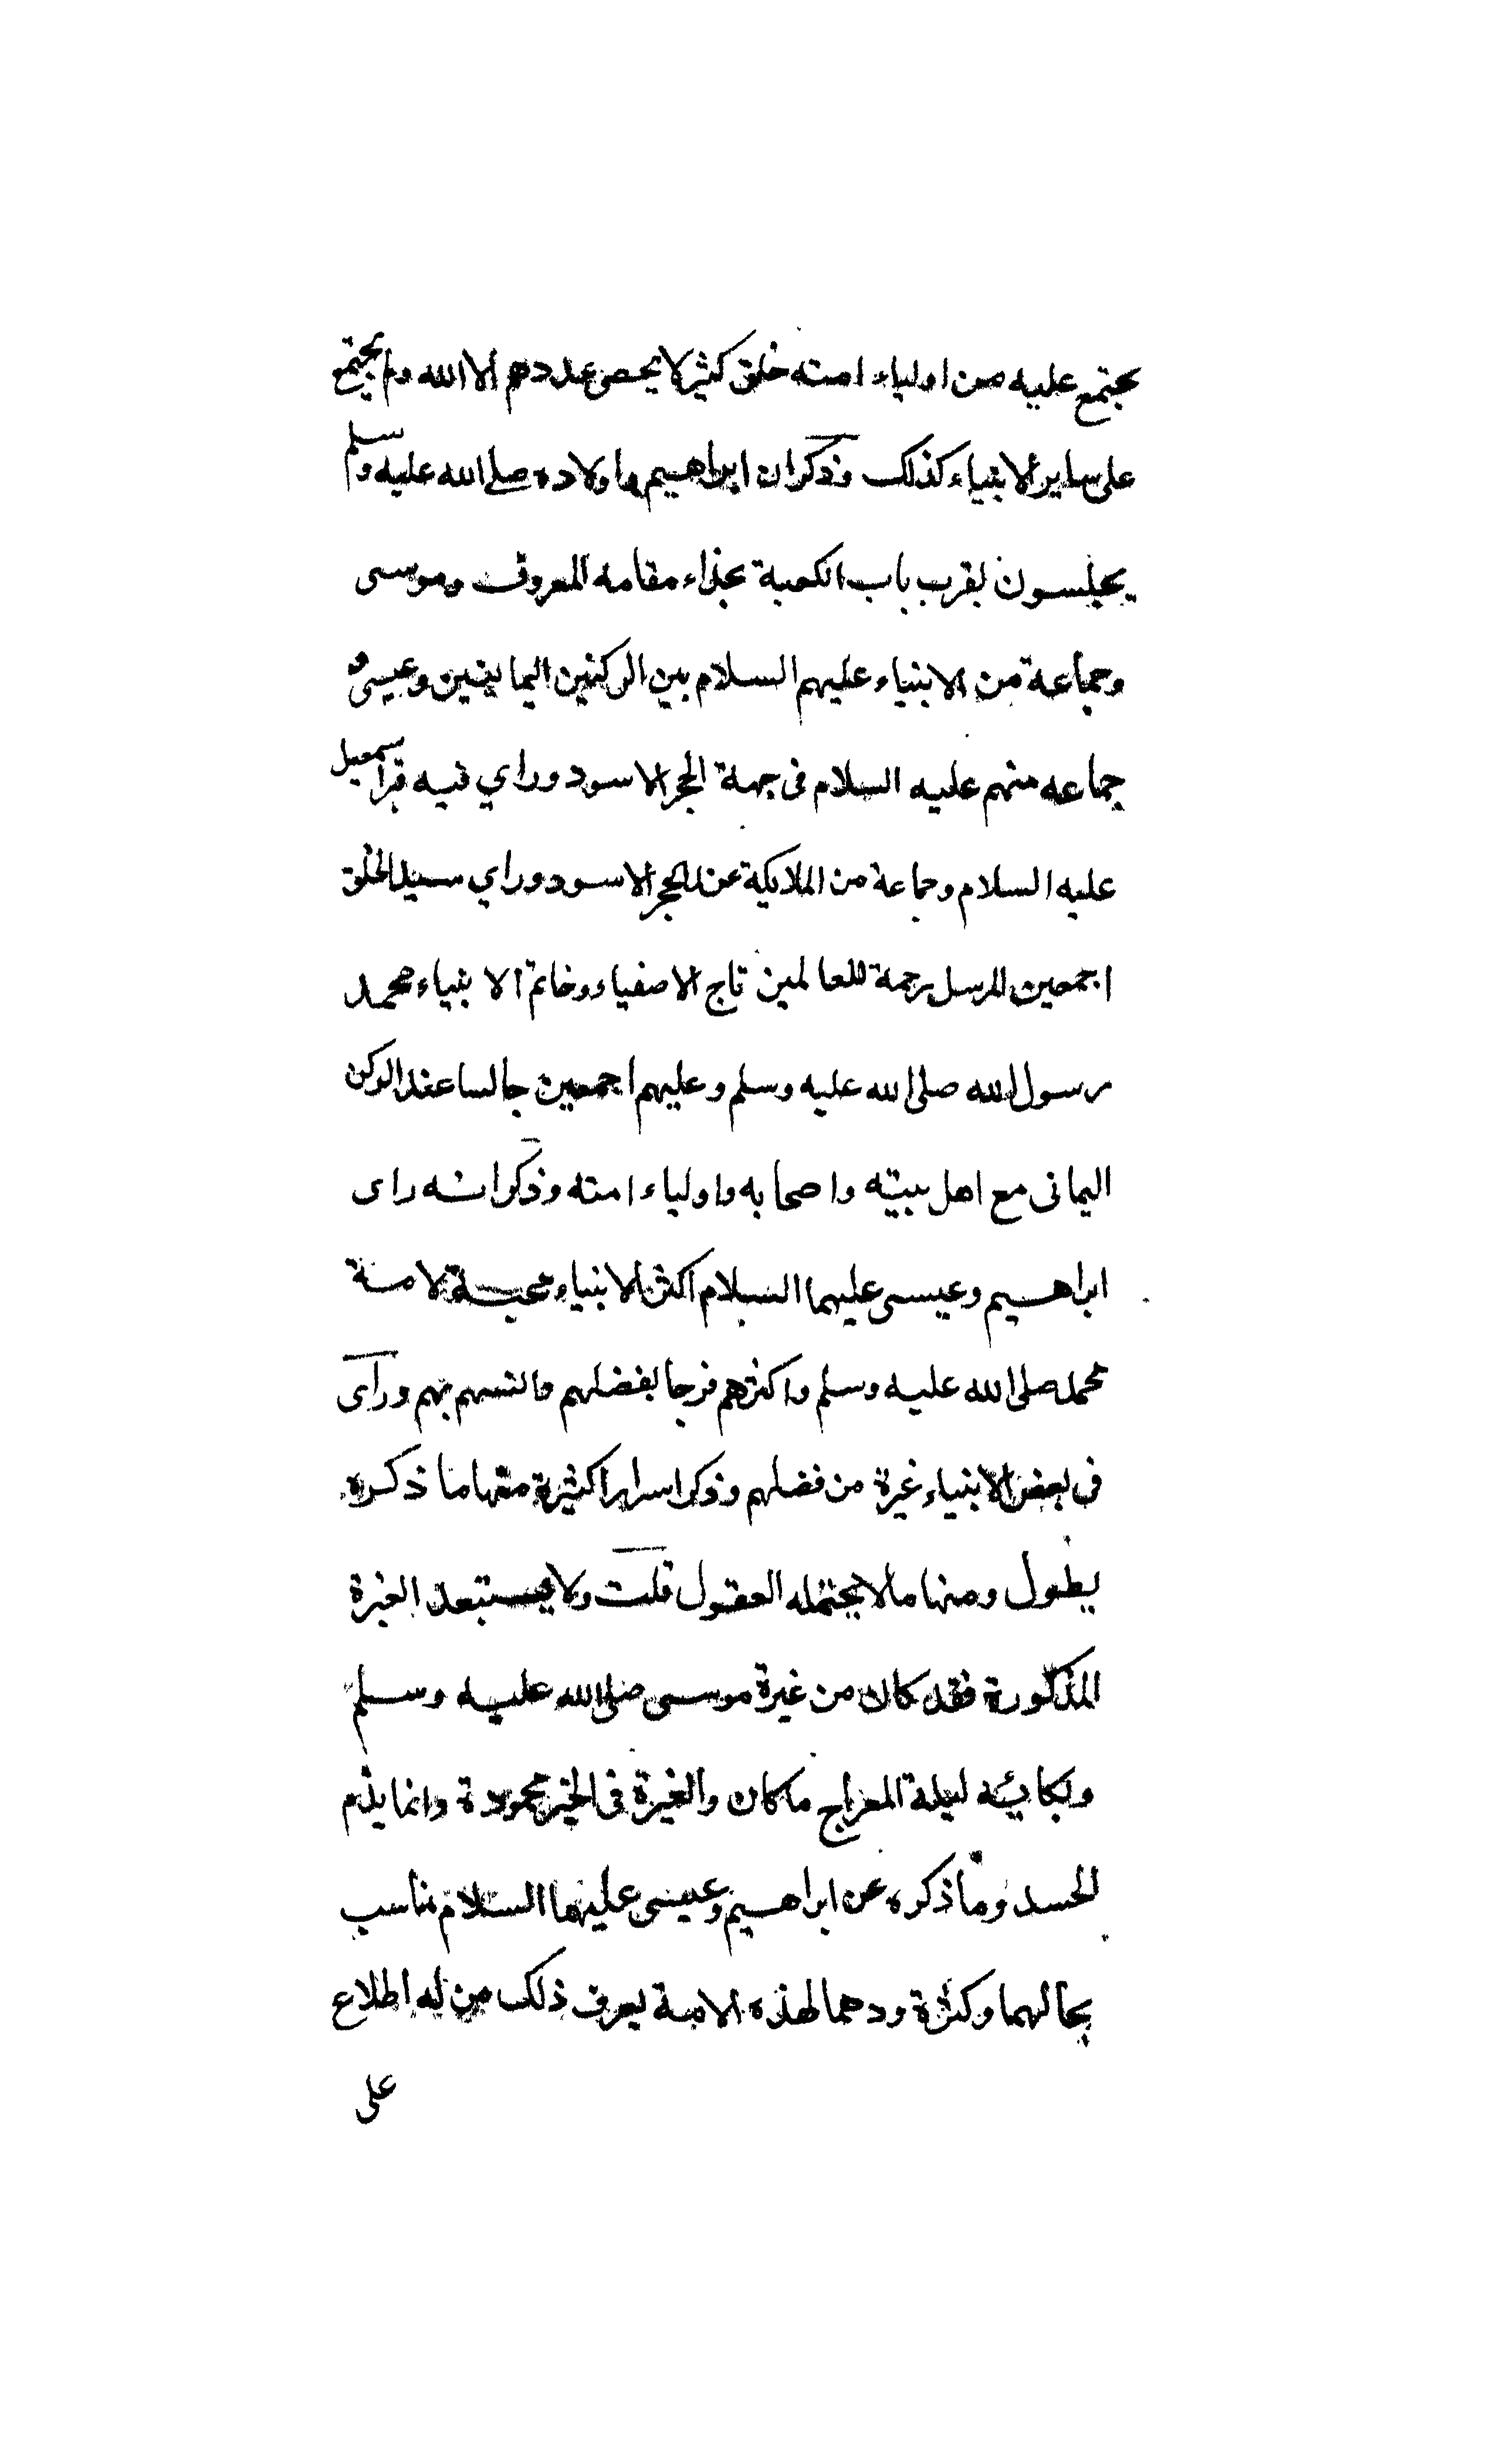 يجتمع عليه من اولياء امته خلق كثير لا يحصى عددهم الا الله ولم يجتمع
على ساير الانبياء كذلك وذكر ان ابراهيم واولاده صلى الله عليه وسلم
يجلسون بقرب باب الكعبة بحذاء مقامه المعروف وموسى
وجماعة من الانبياء عليهم السلام بين الركنين اليمانيين وعيسى و
جماعه منهم عليه السلام فى جهة الحجر الاسود وراي فيه قبر اسمعيل
عليه السلام وجماعة من الملايكة عند الحجر الاسود وراي سيد الخلق
اجمعين المرسل رحمة للعالمين تاج الاصفياء وخاتم الانبياء محمد
رسول الله صلى الله عليه وسلم وعليهم اجمعين جالسا عند الركن
اليمانى مع اهل بيته واصحابه واولياء امته وذكر انه راى
ابراهيم وعيسى عليهما السلام اكثر الانبياء محبة لامة
محمد صلى الله عليه وسلم واكثرهم فرحا بفضلهم وانسهم بهم وراى
فى بعض الانبياء غيرة من فضلهم وذكر اسرارا كثيرة منها ما ذكره
يطول ومنها مالا يحتمله العقول قلت ولا يستبعد الغيرة
المذكورة فقد كان من غيرة موسى صلى الله عليه وسلم
وبكائيه ليلة المعراج ما كان والغيرة فى الخير محمودة وانما يذم
الحسد وما ذكره عن ابراهيم وعيسى عليهما السلام مناسب
بحالهما وكثرة ودهما لهذه الامة يعرف ذلك من له اطلاع
على